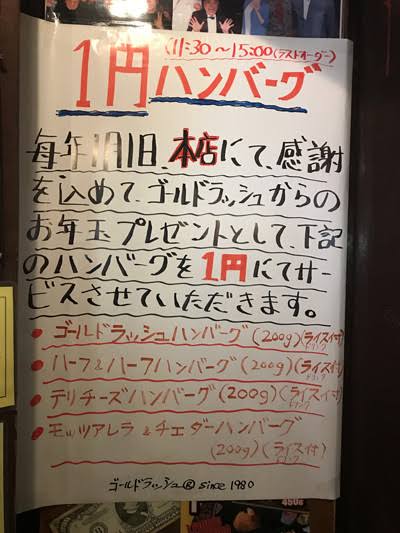 (11:30~15:00(ラストオーダー)
1円ハンバーグ
毎年1月1日、本店にて、感謝
を込めて、ゴールドラッシュからの
お年玉プレゼントとして、下記
のハンバーグを1円にてサー
ビスさせていただきます。
• ゴールドラッシュハンバーグ(200g)(ライス付)
ドリンク
• ハーフ&ハーフハンバーグ(200g)(ライス付)
ドリンク
• テリチーズハンバーグ(200g)(ライス付)
ドリンク
• モッツアレラ&チェダーハンバーグ
(200g)(ライス付)
ドリンク
ゴールドラッシュ® since 1980
450g